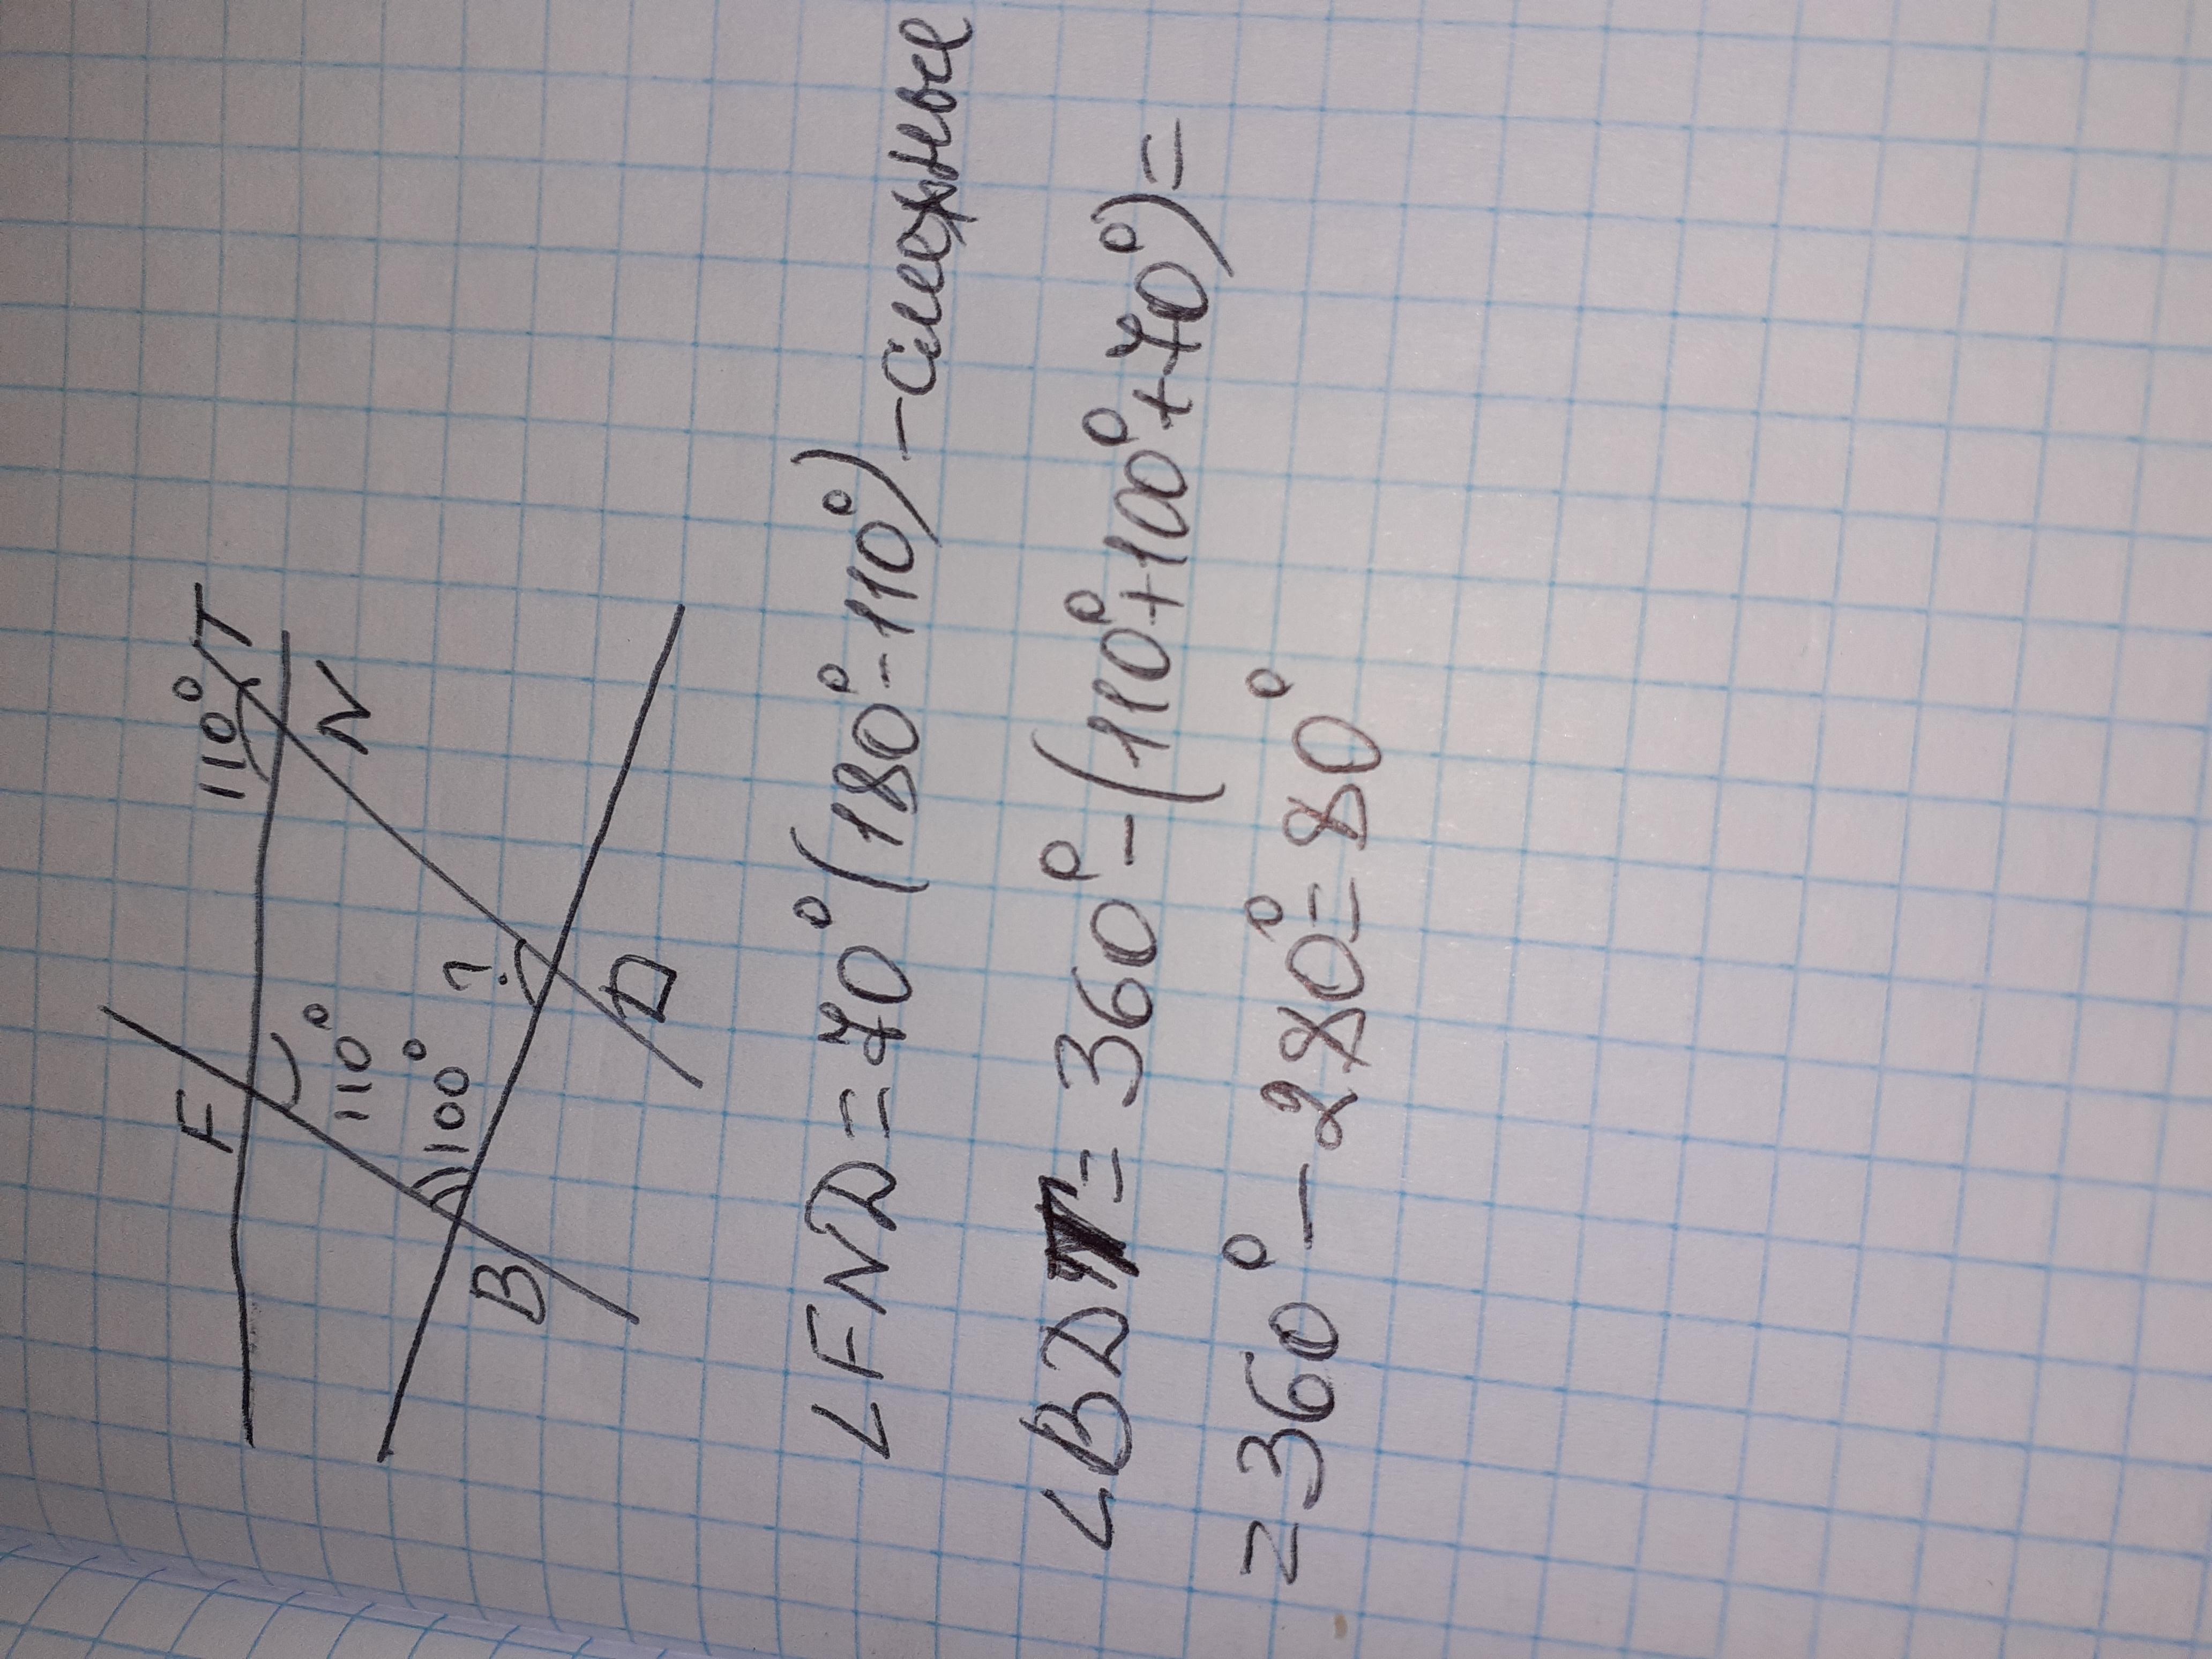 110°
T
F
N
110°
100°
?
B
D
∠FND=70°(180°-110°)-смежные
∠BDN=360°-(110°+100°+70°)=
=360°-280°=80°